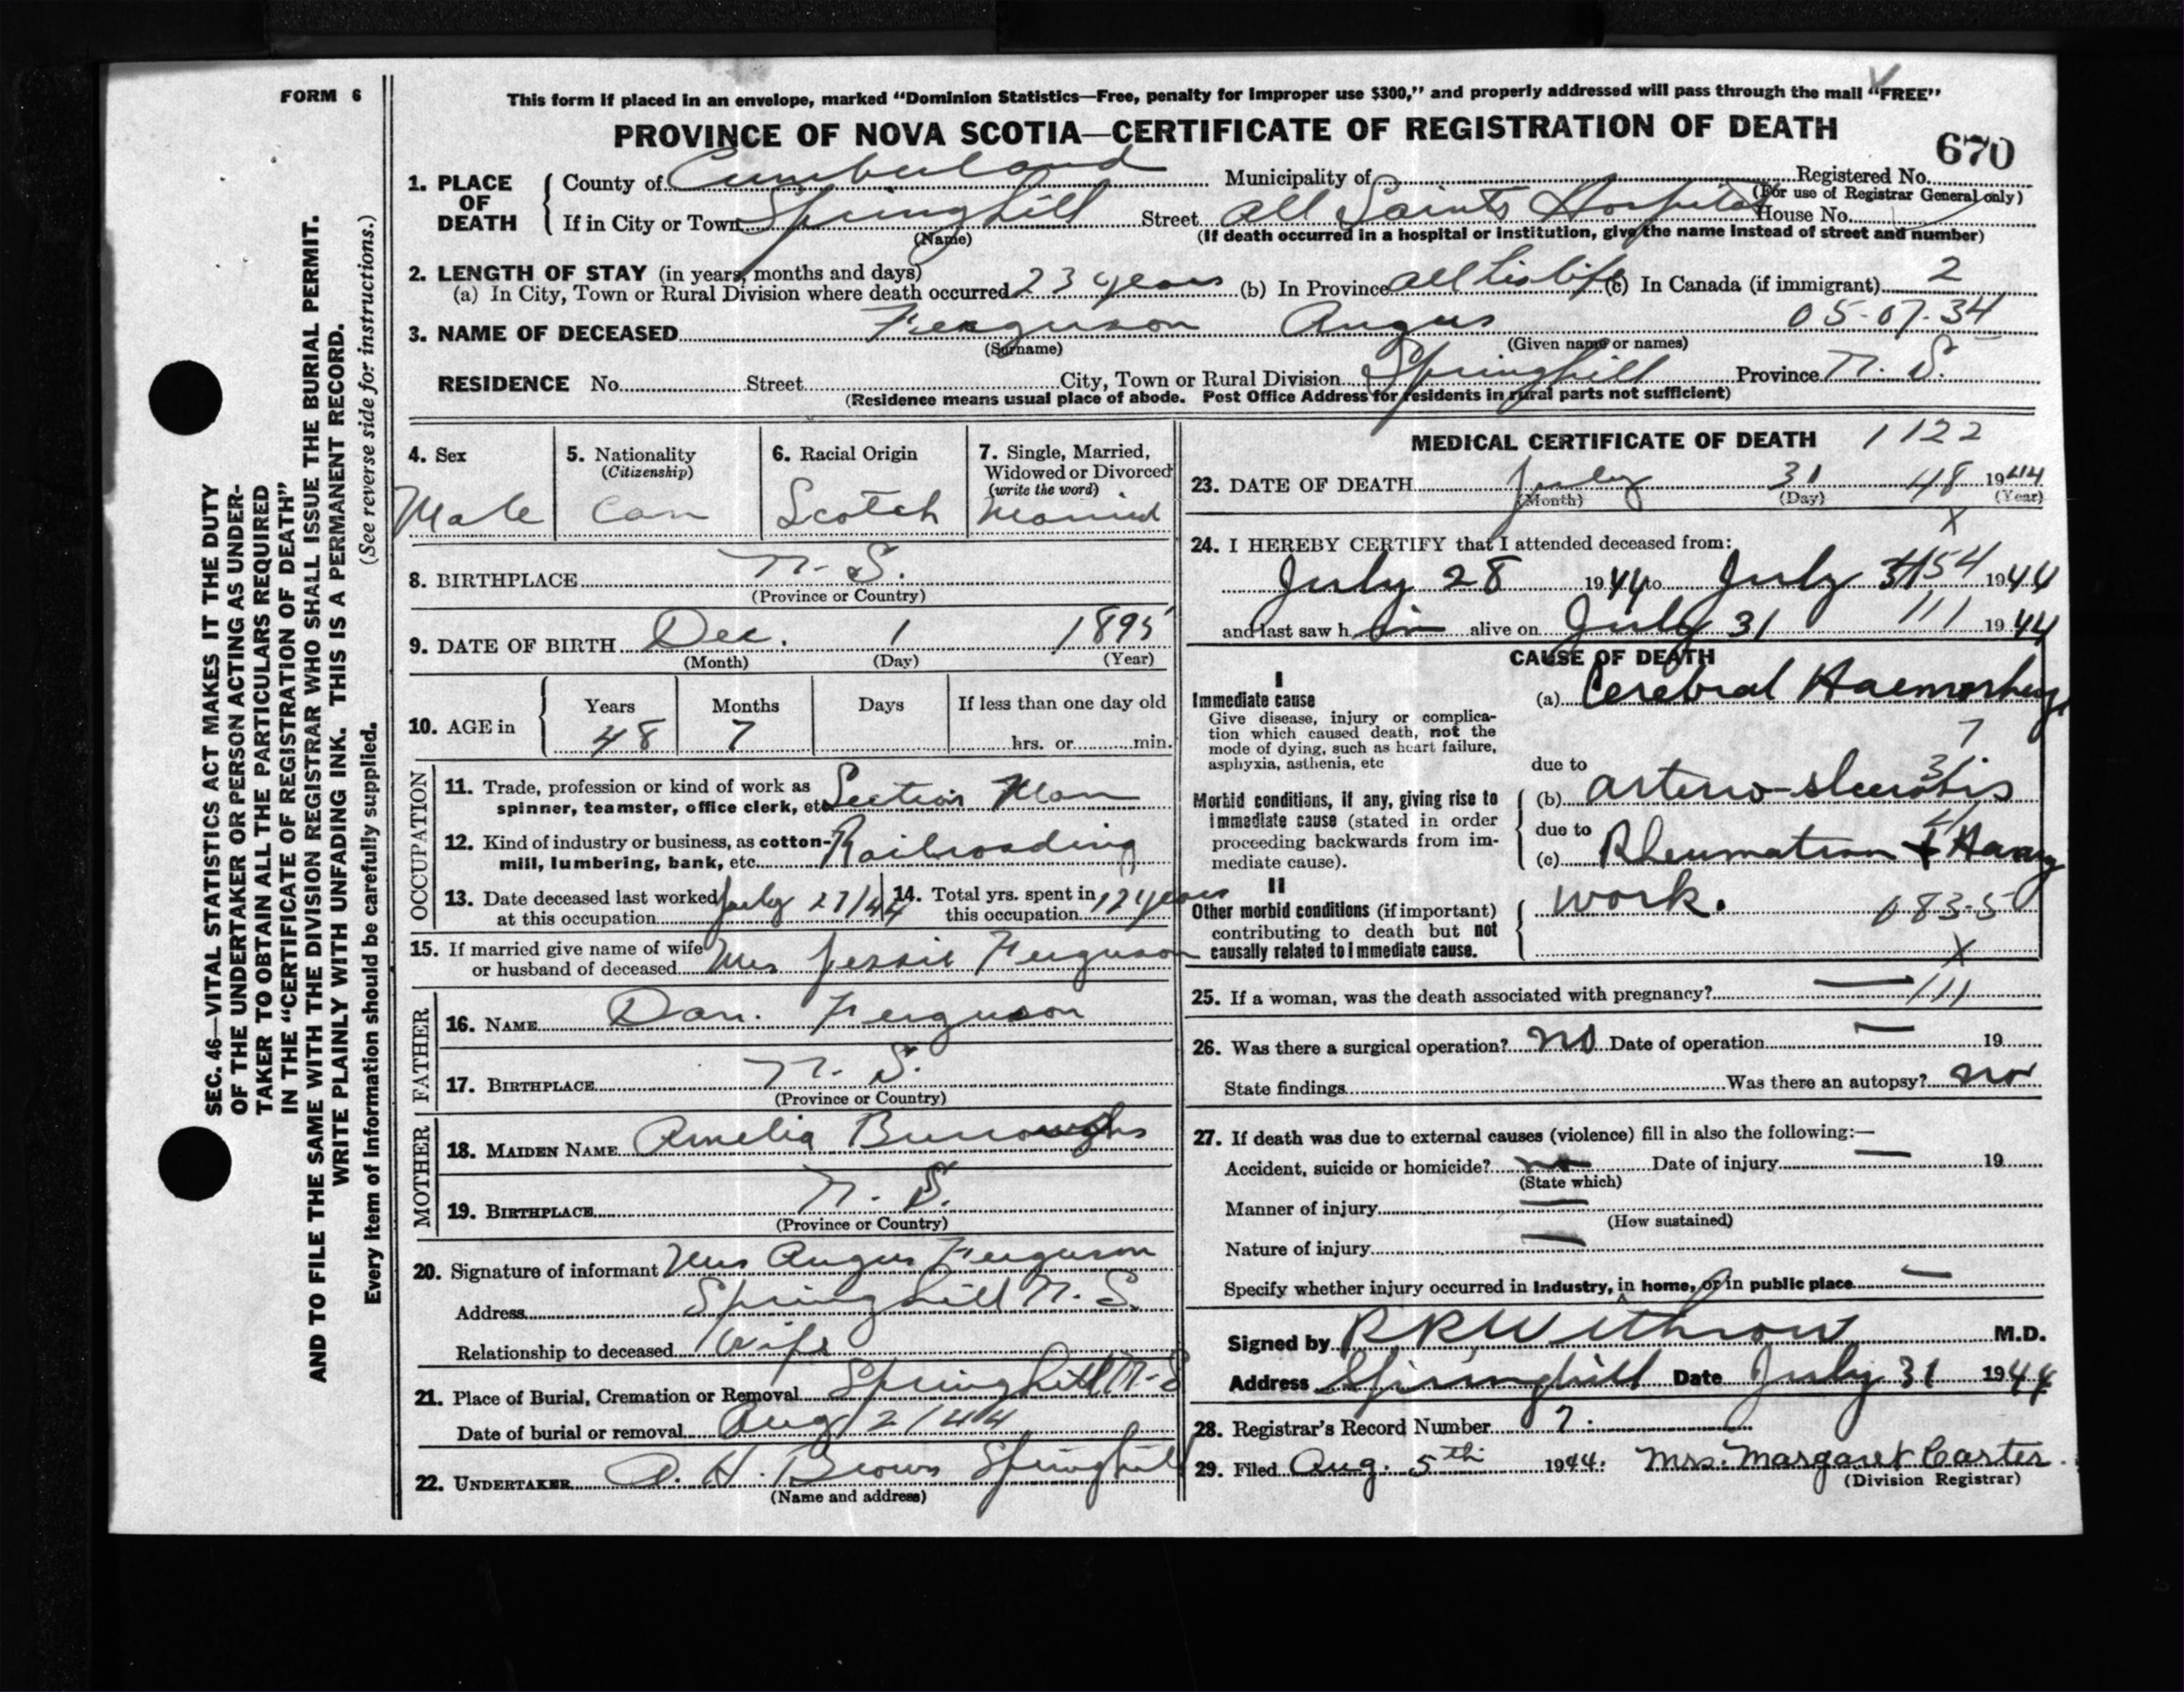 FORM 6
This form if placed in an envelope, marked "Dominion Statistics—Free, penalty for improper use $300," and properly addressed will pass through the mail "FREE"
PROVINCE OF NOVA SCOTIA—CERTIFICATE OF REGISTRATION OF DEATH
670
1. PLACE OF DEATH
County of Cumberland Municipality of Registered No.
(For use of Registrar General only)
If in City or Town Springhill Street All Saints Hospital House No.
(Name) (If death occurred in a hospital or institution, give the name instead of street and number)
2. LENGTH OF STAY (in years, months and days)
(a) In City, Town or Rural Division where death occurred 23 years (b) In Province all his life (c) In Canada (if immigrant) 2
3. NAME OF DECEASED Ferguson Angus 05-07-34
(Surname) (Given name or names)
RESIDENCE No. Street City, Town or Rural Division Springhill Province N. S.
(Residence means usual place of abode. Post Office Address for residents in rural parts not sufficient)
4. Sex
Male
5. Nationality
(Citizenship)
Can
6. Racial Origin
Scotch
7. Single, Married,
Widowed or Divorced
(write the word)
Married
8. BIRTHPLACE N. S.
(Province or Country)
9. DATE OF BIRTH Dec. 1 1895
(Month) (Day) (Year)
10. AGE in
Years Months Days If less than one day old
48 7 hrs. or min.
OCCUPATION
11. Trade, profession or kind of work as
spinner, teamster, office clerk, etc. Section Man
12. Kind of industry or business, as cotton-
mill, lumbering, bank, etc. Railroading
13. Date deceased last worked
at this occupation July 27/44
14. Total yrs. spent in
this occupation 12 years
15. If married give name of wife
or husband of deceased Mrs Jessie Ferguson
FATHER
16. NAME Dan. Ferguson
17. BIRTHPLACE N. S.
(Province or Country)
MOTHER
18. MAIDEN NAME Amelia Burroughs
19. BIRTHPLACE N. S.
(Province or Country)
20. Signature of informant Mrs Angus Ferguson
Address Springhill N. S.
Relationship to deceased Wife
21. Place of Burial, Cremation or Removal Springhill N-S
Date of burial or removal Aug 2/44
22. UNDERTAKER A. H. Brown Springhill
(Name and address)
MEDICAL CERTIFICATE OF DEATH 1122
23. DATE OF DEATH July 31 48 1944
(Month) (Day) (Year)
X
24. I HEREBY CERTIFY that I attended deceased from:
July 28 1944 to July 31 54 1944
and last saw h im alive on July 31 111 1944
CAUSE OF DEATH
I
Immediate cause
Give disease, injury or complica-
tion which caused death, not the
mode of dying, such as heart failure,
asphyxia, asthenia, etc
(a) Cerebral Haemorrhage
7
due to
3/
Morbid conditions, if any, giving rise to
immediate cause (stated in order
proceeding backwards from im-
mediate cause).
(b) arterio-sclerosis
due to
(c) Rheumatism + Heavy
II
Other morbid conditions (if important)
contributing to death but not
causally related to immediate cause.
work.
083-5
X
25. If a woman, was the death associated with pregnancy? — 111
26. Was there a surgical operation? no Date of operation — 19
State findings Was there an autopsy? no
27. If death was due to external causes (violence) fill in also the following:—
Accident, suicide or homicide? no Date of injury — 19
(State which)
Manner of injury —
(How sustained)
Nature of injury —
Specify whether injury occurred in industry, in home, or in public place —
Signed by R R Withrow M.D.
Address Springhill Date July 31 1944
28. Registrar's Record Number 7.
29. Filed Aug. 5th 1944. Mrs. Margaret Carter.
(Division Registrar)
SEC. 46—VITAL STATISTICS ACT MAKES IT THE DUTY
OF THE UNDERTAKER OR PERSON ACTING AS UNDER-
TAKER TO OBTAIN ALL THE PARTICULARS REQUIRED
IN THE "CERTIFICATE OF REGISTRATION OF DEATH"
AND TO FILE THE SAME WITH THE DIVISION REGISTRAR WHO SHALL ISSUE THE BURIAL PERMIT.
WRITE PLAINLY WITH UNFADING INK. THIS IS A PERMANENT RECORD.
Every item of information should be carefully supplied. (See reverse side for instructions.)